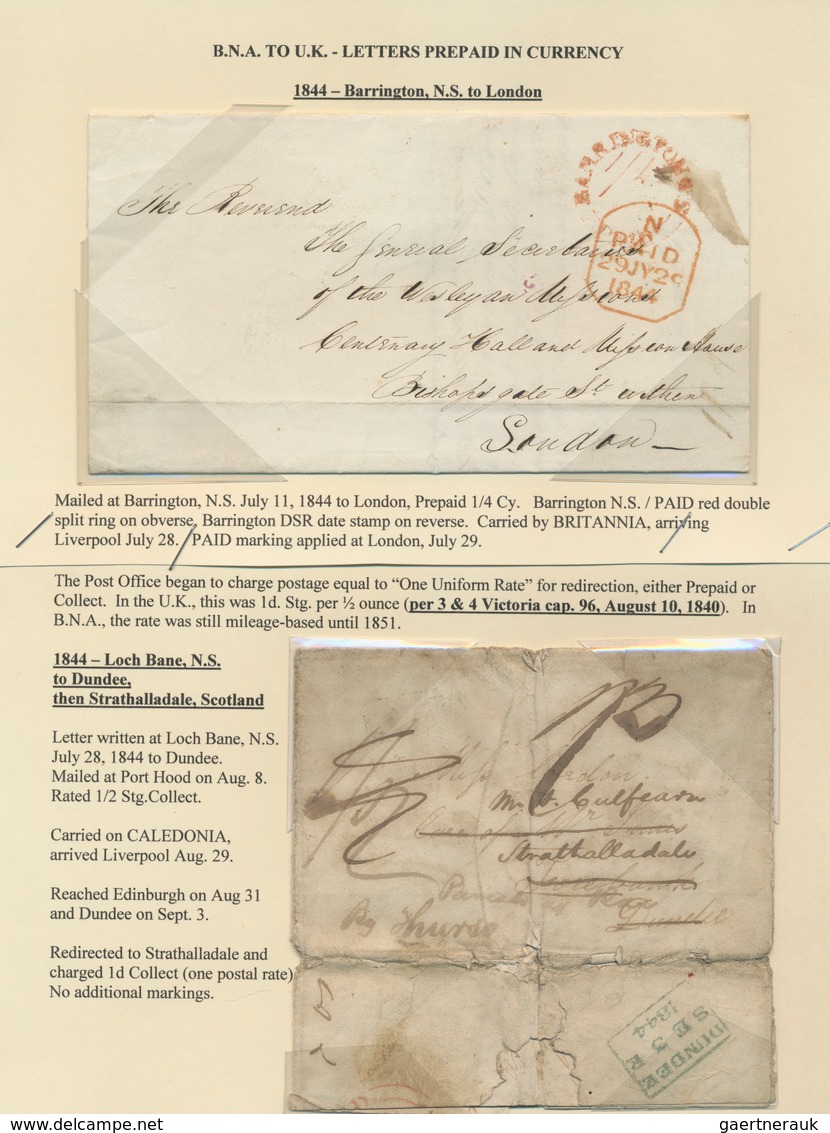 B.N.A. TO U.K. - LETTERS PREPAID IN CURRENCY
1844 – Barrington, N.S. to London
BARRINGTON
1/4
The Reverend
PAID
29JY29
1844
The General Secretaries
of the Wesleyan Missions
Centenary Hall and Mission House
Bishopsgate St. within
London
Mailed at Barrington, N.S. July 11, 1844 to London, Prepaid 1/4 Cy. Barrington N.S. / PAID red double
split ring on obverse, Barrington DSR date stamp on reverse. Carried by BRITANNIA, arriving
Liverpool July 28. PAID marking applied at London, July 29.
The Post Office began to charge postage equal to “One Uniform Rate” for redirection, either Prepaid or
Collect. In the U.K., this was 1d. Stg. per ½ ounce (per 3 & 4 Victoria cap. 96, August 10, 1840). In
B.N.A., the rate was still mileage-based until 1851.
1844 – Loch Bane, N.S.
to Dundee,
then Strathalladale, Scotland
Letter written at Loch Bane, N.S.
July 28, 1844 to Dundee.
Mailed at Port Hood on Aug. 8.
Rated 1/2 Stg.Collect.
Carried on CALEDONIA,
arrived Liverpool Aug. 29.
Reached Edinburgh on Aug 31
and Dundee on Sept. 3.
Redirected to Strathalladale and
charged 1d Collect (one postal rate)
No additional markings.
Miss Gordon
Culfearn
Care of
Strathalladale
By Thurso
Dundee
DUNDEE
SE 3
1844
delcampe.net
gaertnerauk